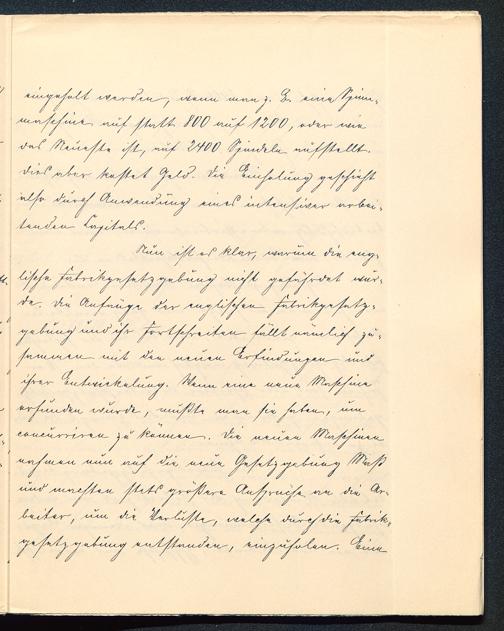 eingeholt werden, wenn man z. B. eine Spinn-
maschine auf statt 800 auf 1200, oder wie
das Neueste ist, auf 2400 Spindeln aufstellt.
Dies aber kostet Geld. Die Einholung geschieht
also durch Anwendung eines intensiver arbei-
tenden Capitals.
Nun ist es klar, warum die eng-
lische Fabrikgesetzgebung nicht gefährdet wur-
de. Die Anfänge der englischen Fabrikgesetz-
gebung und ihr Fortschreiten fällt nämlich zu-
sammen mit den neuen Erfindungen und
ihrer Entwickelung. Wenn eine neue Maschine
erfunden wurde, mußte man sie haben, um
concurriren zu können. Die neuen Maschinen
nahmen nun auf die neue Gesetzgebung
und machten stets größere Ansprüche an die Ar-
beiter, um die Verluste, welche durch die Fabrik-
gesetzgebung entstanden, einzuholen. Eine